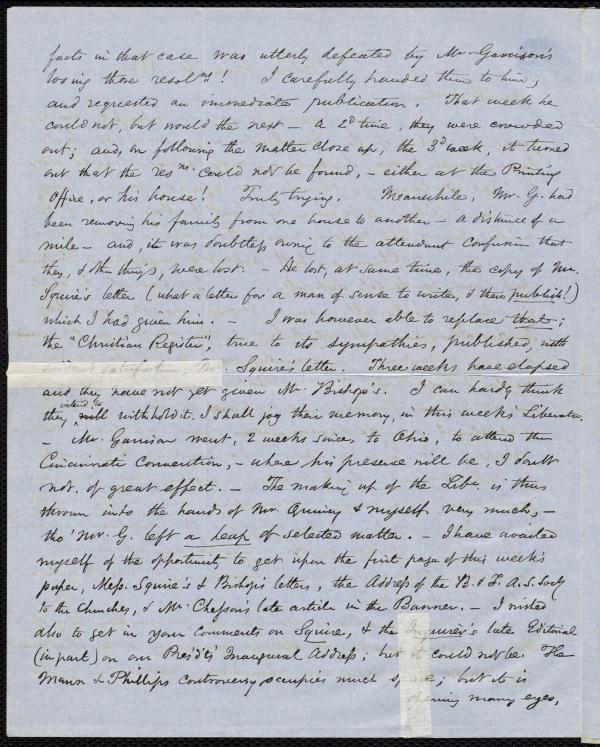 facts in that case was utterly defeated by Mr. Garrison's
losing those resolns! I carefully handed them to him,
and requested an immediate publication. That week he
could not, but would the next – a 2d time, they were crowded
out; and, on following the matter close up, the 3d week, it turned
out that the resns. could not be found, – either at the Printing
Office, or his house! Truly trying. Meanwhile, Mr. G. had
been removing his family from one house to another – a distance of a
mile – and, it was doubtless owing to the attendant confusion that
they, & other things, were lost. – He lost, at same time, the copy of Mr.
Squire's letter (what a letter for a man of sense to write, & then publish!)
which I had given him. – I was however able to replace that;
the "Christian Register", true to its sympathies, published, with
evident satisfaction, Mr. Squire's letter. Three weeks have elapsed
and they have not yet given Mr. Bishop's. I can hardly think
they intend to will withhold it. I shall jog their memory, in this week's Liberator.
– Mr. Garrison went, 2 weeks since, to Ohio, to attend the
Cincinnati Convention, – where his presence will be, I doubt
not, of great effect. – The making up of the Libr. is thus
thrown into the hands of Mr. Quincy & myself very much, –
tho' Mr. G. left a heap of selected matter. – I have availed
myself of the opportunity to get upon the first page of this week's
paper, Mess. Squire's & Bishop's letters, the Address of the B. & F. A. S. Socy
to the Churches, & Mr. Chesson's late article in the Banner. – I wished
also to get in your Comments on Squire, & the Inquirer's late Editorial
(in part) on our Presidt's Inaugural Address; but it could not be. The
Mann & Phillips Controversy occupies much space; but it is
opening many eyes,